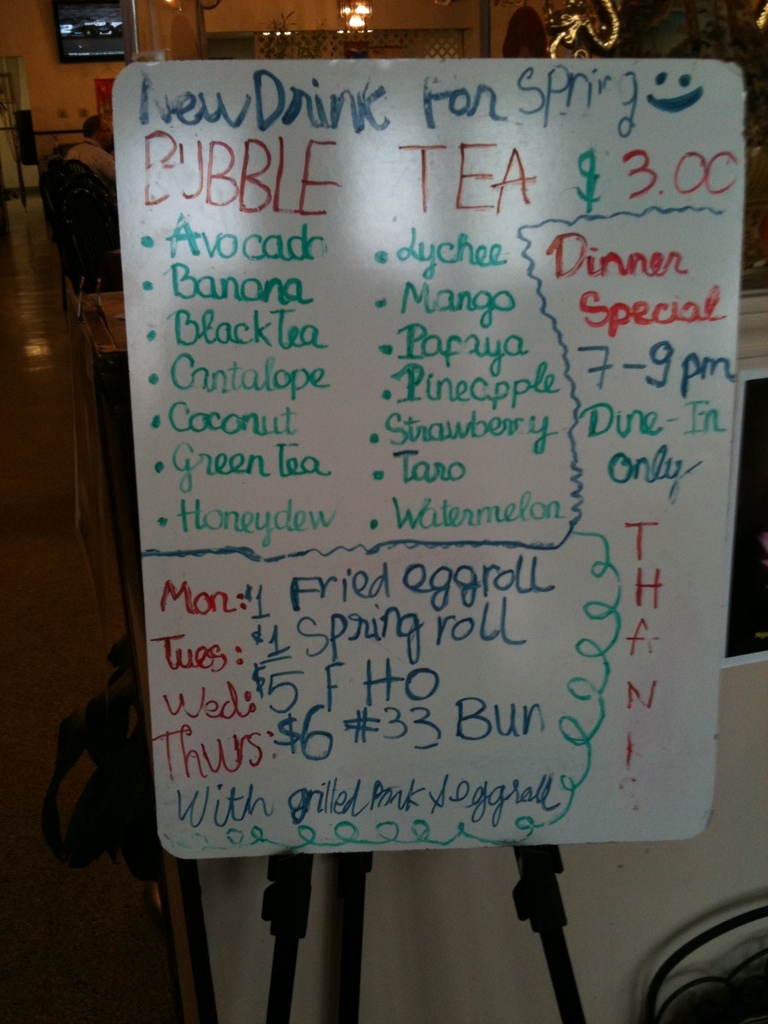 New Drink For Spring
BUBBLE TEA $3.00
• Avocado
• Banana
• Black Tea
• Cantalope
• Coconut
• Green Tea
• Honeydew
• Lychee
• Mango
• Papaya
• Pineapple
• Strawberry
• Taro
• Watermelon
Dinner
Special
7-9pm
Dine-In
only
THANKS
Mon: $1 Fried eggroll
Tues: $1 Spring roll
Wed: $5 PHO
Thurs: $6 #33 Bun
With grilled Pork & eggroll